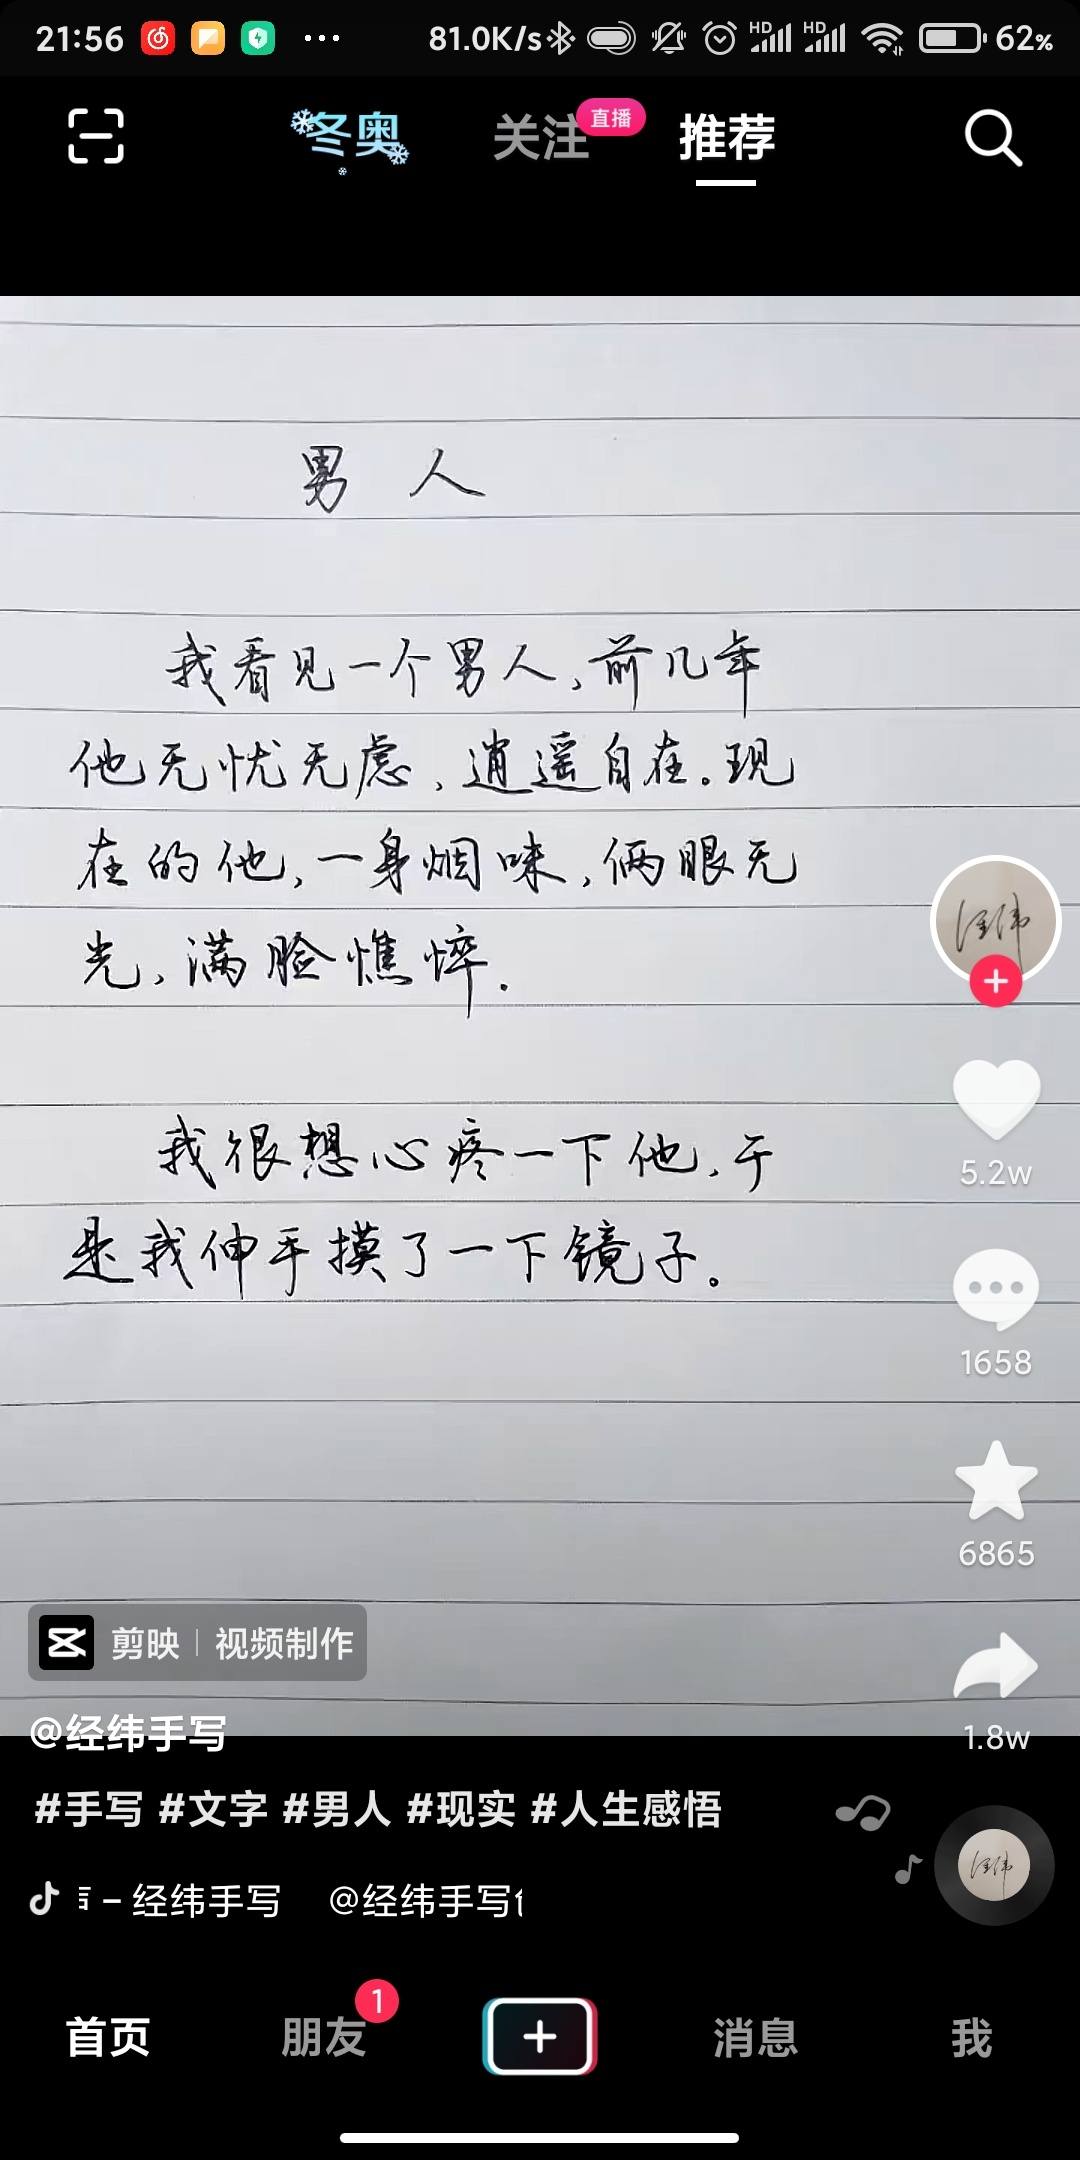 21:56
81.0K/s
HD
HD
62%
冬奥
关注
直播
推荐
男人
我看见一个男人,前几年
他无忧无虑,逍遥自在。现
在的他,一身烟味,俩眼无
光,满脸憔悴.
我很想心疼一下他,于
是我伸手摸了一下镜子。
5.2w
1658
6865
1.8w
剪映 | 视频制作
@经纬手写
#手写 #文字 #男人 #现实 #人生感悟
– 经纬手写 @经纬手写
首页
朋友
1
消息
我